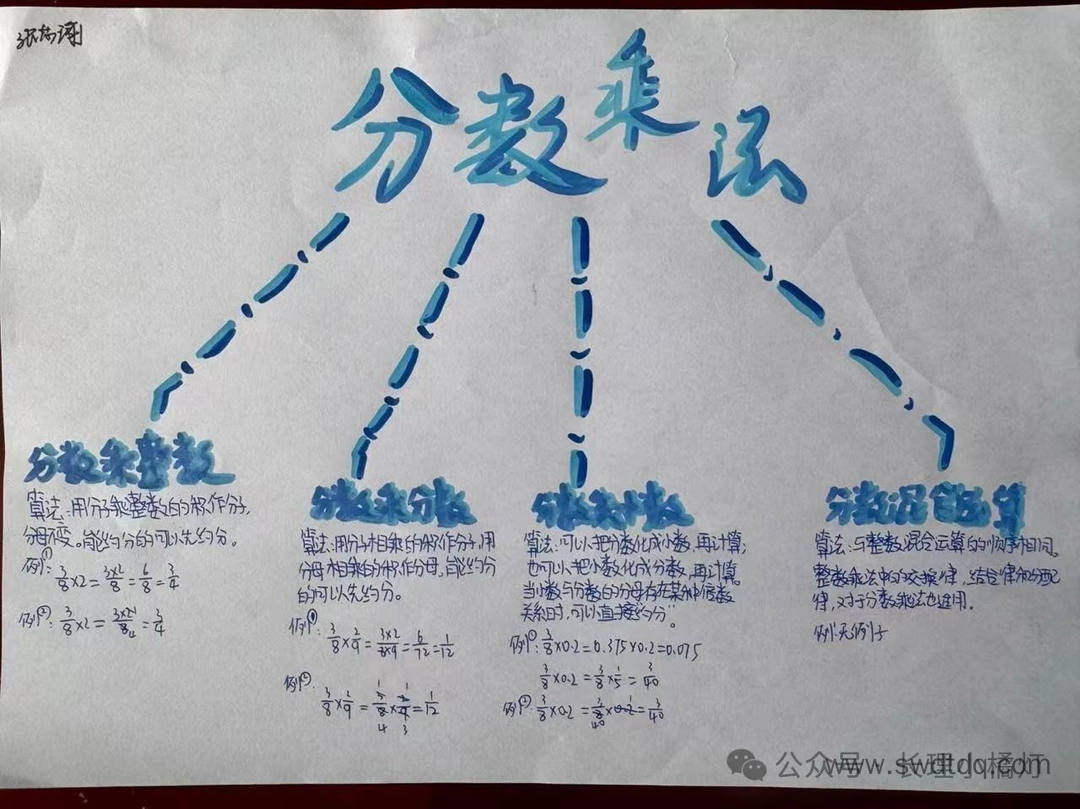 分数乘法
分数乘整数
算法:用分子乘整数的积作分子,
分母不变。能约分的可以先约分。
例①:3/8×2=3×2/8=6/8=3/4
例②:3/8×2=3×2/8 4=3/4
分数乘分数
算法:用分子相乘的积作分子,用
分母相乘的积作分母,能约分
的可以先约分。
例①:3/8×2/9=3×2/8×9=6/72=1/12
例②:3/8×2/9= = 1/12
分数乘小数
算法:可以把分数化成小数,再计算;
也可以把小数化成分数,再计算。
当小数与分数的分母存在某种倍数
关系时,可以“直接约分”。
例①:3/8×0.2=0.375×0.2=0.075
3/8×0.2=3/8×1/5=3/40
例②:3/8×0.2=3/8 40×0.2 1=3/40
分数混合运算
算法:与整数混合运算的顺序相同。
整数乘法中的交换律,结合律和分配
律,对于分数乘法也适用。
例:无例子
公众号 长理小橘灯
www.swdtdq.com